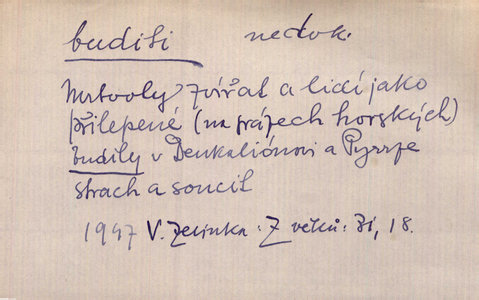 budili nedok.
Mrtvoly zvířat a lidí jako
přilepené (na srázech horských)
budily v Deukaliónovi a Pyrrze
strach a soucit
1947 V. Zelinka: Z věků: 31, 18.